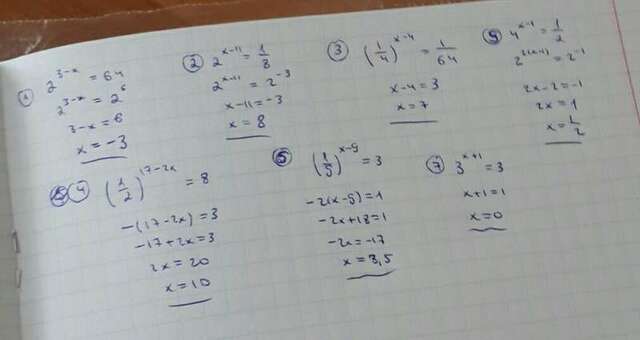 ① 2^(3-x) = 64
2^(3-x) = 2^6
3-x = 6
x = -3
② 2^(x-11) = 1/8
2^(x-11) = 2^(-3)
x-11 = -3
x = 8
③ (1/4)^(x-4) = 1/64
x-4 = 3
x = 7
4^(x-1) = 1/2
2^(2(x-1)) = 2^(-1)
2x-2 = -1
2x = 1
x = 1/2
④ (1/2)^(17-2x) = 8
-(17-2x) = 3
-17+2x = 3
2x = 20
x = 10
(1/9)^(x-9) = 3
-2(x-9) = 1
-2x+18 = 1
-2x = -17
x = 8,5
⑦ 3^(x+1) = 3
x+1 = 1
x = 0